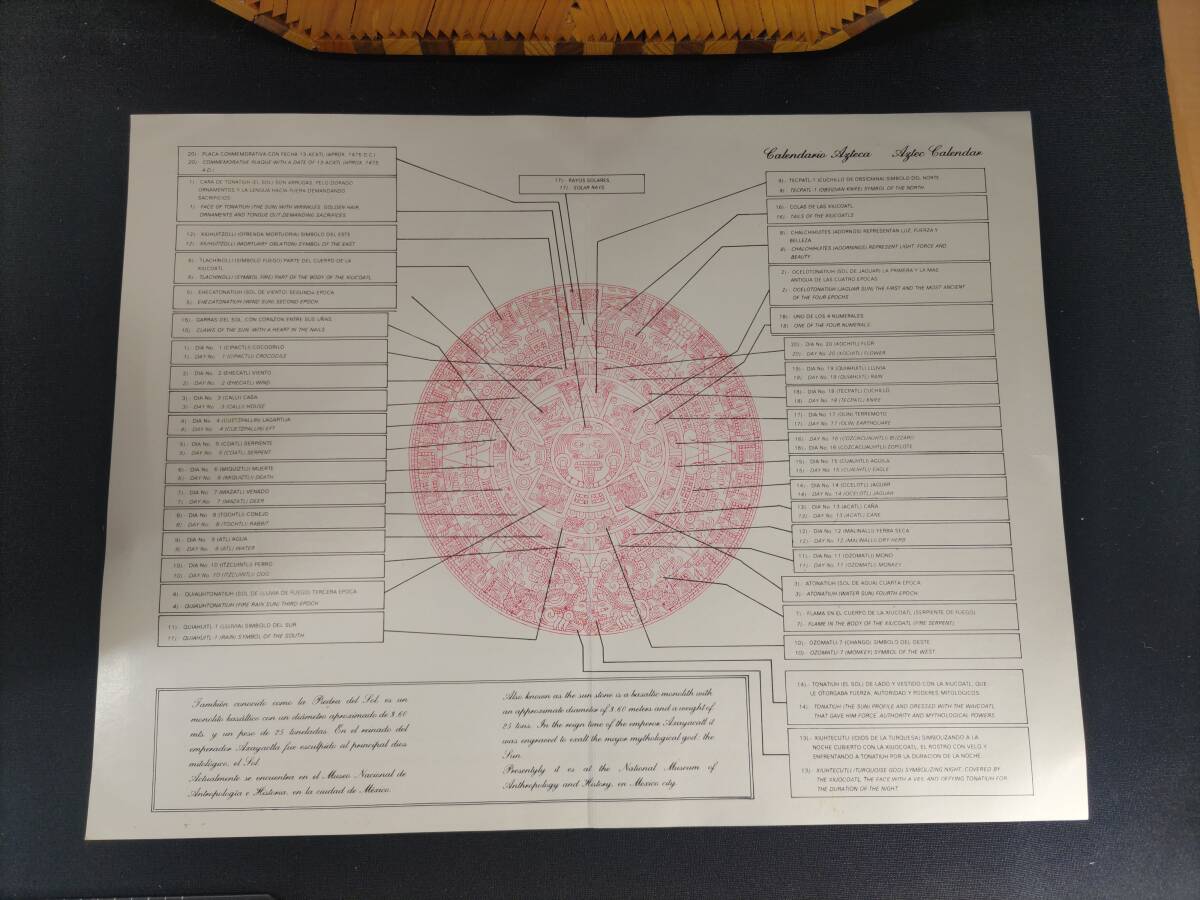 Calendario Azteca Aztec Calendar
20).- PLACA CONMEMORATIVA CON FECHA 13-ACATL (APROX. 1475 D.C.)
20).- COMMEMORATIVE PLAQUE WITH A DATE OF 13-ACATL (APROX. 1475
A.D.)
1).- CARA DE TONATIUH (EL SOL) SUN ARRUGAS, PELO DORADO
ORNAMENTOS Y LA LENGUA HACIA FUERA DEMANDANDO
SACRIFICIOS
1).- FACE OF TONATIUH (THE SUN) WITH WRINKLES, GOLDEN HAIR,
ORNAMENTS AND TONGUE OUT DEMANDING SACRIFICES
12).- XIUHUITZOLLI (OFRENDA MORTUORIA) SIMBOLO DEL ESTE
12).- XIUHUITZOLLI (MORTUARY OBLATION) SYMBOL OF THE EAST
6).- TLACHINOLLI (SIMBOLO FUEGO) PARTE DEL CUERPO DE LA
XIUCOATL
6).- TLACHINOLLI (SYMBOL FIRE) PART OF THE BODY OF THE XIUCOATL
5).- EHECATONATIUH (SOL DE VIENTO) SEGUNDA EPOCA
5).- EHECATONATIUH (WIND SUN) SECOND EPOCH
15).- GARRAS DEL SOL, CON CORAZON ENTRE SUS UÑAS
15).- CLAWS OF THE SUN, WITH A HEART IN THE NAILS
1).- DIA No. 1 (CIPACTLI) COCODRILO
1).- DAY No. 1 (CIPACTLI) CROCODILE
2).- DIA No. 2 (EHECATL) VIENTO
2).- DAY No. 2 (EHECATL) WIND
3).- DIA No. 3 (CALLI) CASA
3).- DAY No. 3 (CALLI) HOUSE
4).- DIA No. 4 (CUETZPALLIN) LAGARTIJA
4).- DAY No. 4 (CUETZPALLIN) EFT
5).- DIA No. 5 (COATL) SERPIENTE
5).- DAY No. 5 (COATL) SERPENT
6).- DIA No. 6 (MIQUIZTLI) MUERTE
6).- DAY No. 6 (MIQUIZTLI) DEATH
7).- DIA No. 7 (MAZATL) VENADO
7).- DAY No. 7 (MAZATL) DEER
8).- DIA No. 8 (TOCHTLI) CONEJO
8).- DAY No. 8 (TOCHTLI) RABBIT
9).- DIA No. 9 (ATL) AGUA
9).- DAY No. 9 (ATL) WATER
10).- DIA No. 10 (ITZCUINTLI) PERRO
10).- DAY No. 10 (ITZCUINTLI) DOG
4).- QUIAUHTONATIUH (SOL DE LLUVIA DE FUEGO) TERCERA EPOCA
4).- QUIAUHTONATIUH (FIRE RAIN SUN) THIRD EPOCH
11).- QUIAHUITL-1 (LLUVIA) SIMBOLO DEL SUR
11).- QUIAHUITL-1 (RAIN) SYMBOL OF THE SOUTH
17).- RAYOS SOLARES
17).- SOLAR RAYS
9).- TECPATL-1 (CUCHILLO DE OBSIDIANA) SIMBOLO DEL NORTE
9).- TECPATL-1 (OBSIDIAN KNIFE) SYMBOL OF THE NORTH
16).- COLAS DE LAS XIUCOATL
16).- TAILS OF THE XIUCOATLS
8).- CHALCHIHUITES (ADORNOS) REPRESENTAN LUZ, FUERZA Y
BELLEZA
8).- CHALCHIHUITES (ADORNINGS) REPRESENT LIGHT, FORCE AND
BEAUTY
2).- OCELOTONATIUH (SOL DE JAGUAR) LA PRIMERA Y LA MAS
ANTIGUA DE LAS CUATRO EPOCAS
2).- OCELOTONATIUH (JAGUAR SUN) THE FIRST AND THE MOST ANCIENT
OF THE FOUR EPOCHS
18).- UNO DE LOS 4 NUMERALES
18).- ONE OF THE FOUR NUMERALS
20).- DIA No. 20 (XOCHITL) FLOR
20).- DAY No. 20 (XOCHITL) FLOWER
19).- DIA No. 19 (QUIAHUITL) LLUVIA
19).- DAY No. 19 (QUIAHUITL) RAIN
18).- DIA No. 18 (TECPATL) CUCHILLO
18).- DAY No. 18 (TECPATL) KNIFE
17).- DIA No. 17 (OLIN) TERREMOTO
17).- DAY No. 17 (OLIN) EARTHQUAKE
16).- DAY No. 16 (COZCACUAUHTLI) BUZZARD
16).- DIA No. 16 (COZCACUAUHTLI) ZOPILOTE
15).- DIA No. 15 (CUAUHTLI) AGUILA
15).- DAY No. 15 (CUAUHTLI) EAGLE
14).- DIA No. 14 (OCELOTL) JAGUAR
14).- DAY No. 14 (OCELOTL) JAGUAR
13).- DIA No. 13 (ACATL) CAÑA
13).- DAY No. 13 (ACATL) CANE
12).- DIA No. 12 (MALINALLI) YERBA SECA
12).- DAY No. 12 (MALINALLI) DRY HERB
11).- DIA No. 11 (OZOMATLI) MONO
11).- DAY No. 11 (OZOMATLI) MONKEY
3).- ATONATIUH (SOL DE AGUA) CUARTA EPOCA
3).- ATONATIUH (WATER SUN) FOURTH EPOCH
7).- FLAMA EN EL CUERPO DE LA XIUCOATL (SERPIENTE DE FUEGO)
7).- FLAME IN THE BODY OF THE XIUCOATL (FIRE SERPENT)
10).- OZOMATLI-7 (CHANGO) SIMBOLO DEL OESTE
10).- OZOMATLI-7 (MONKEY) SYMBOL OF THE WEST
14).- TONATIUH (EL SOL) DE LADO Y VESTIDO CON LA XIUCOATL, QUE
LE OTORGABA FUERZA, AUTORIDAD Y PODERES MITOLOGICOS
14).- TONATIUH (THE SUN) PROFILE AND DRESSED WITH THE XIUCOATL
THAT GAVE HIM FORCE, AUTHORITY AND MYTHOLOGICAL POWERS
13).- XIUHTECUTLI (DIOS DE LA TURQUESA) SIMBOLIZANDO A LA
NOCHE CUBIERTO CON LA XIUOCOATL, EL ROSTRO CON VELO Y
ENFRENTANDO A TONATIUH POR LA DURACION DE LA NOCHE
13).- XIUHTECUTLI (TURQUOISE GOD) SYMBOLIZING NIGHT, COVERED BY
THE XIUOCOATL, THE FACE WITH A VEIL AND DEFYING TONATIUH FOR
THE DURATION OF THE NIGHT
También conocido como la Piedra del Sol, es un
monolito basáltico con un diámetro aproximado de 3.60
mts. y un peso de 25 toneladas. En el reinado del
emperador Axayacatla fue esculpido al principal dios
mitológico, el Sol.
Actualmente se encuentra en el Museo Nacional de
Antropología e Historia, en la ciudad de México.
Also known as the sun stone is a basaltic monolith with
an approximate diameter of 3.60 meters and a weight of
25 tons. In the reign time of the emperor Axayacatl it
was engraved to exalt the major mythological god: the
Sun.
Presentgly it is at the National Museum of
Anthropology and History, en Mexico city.